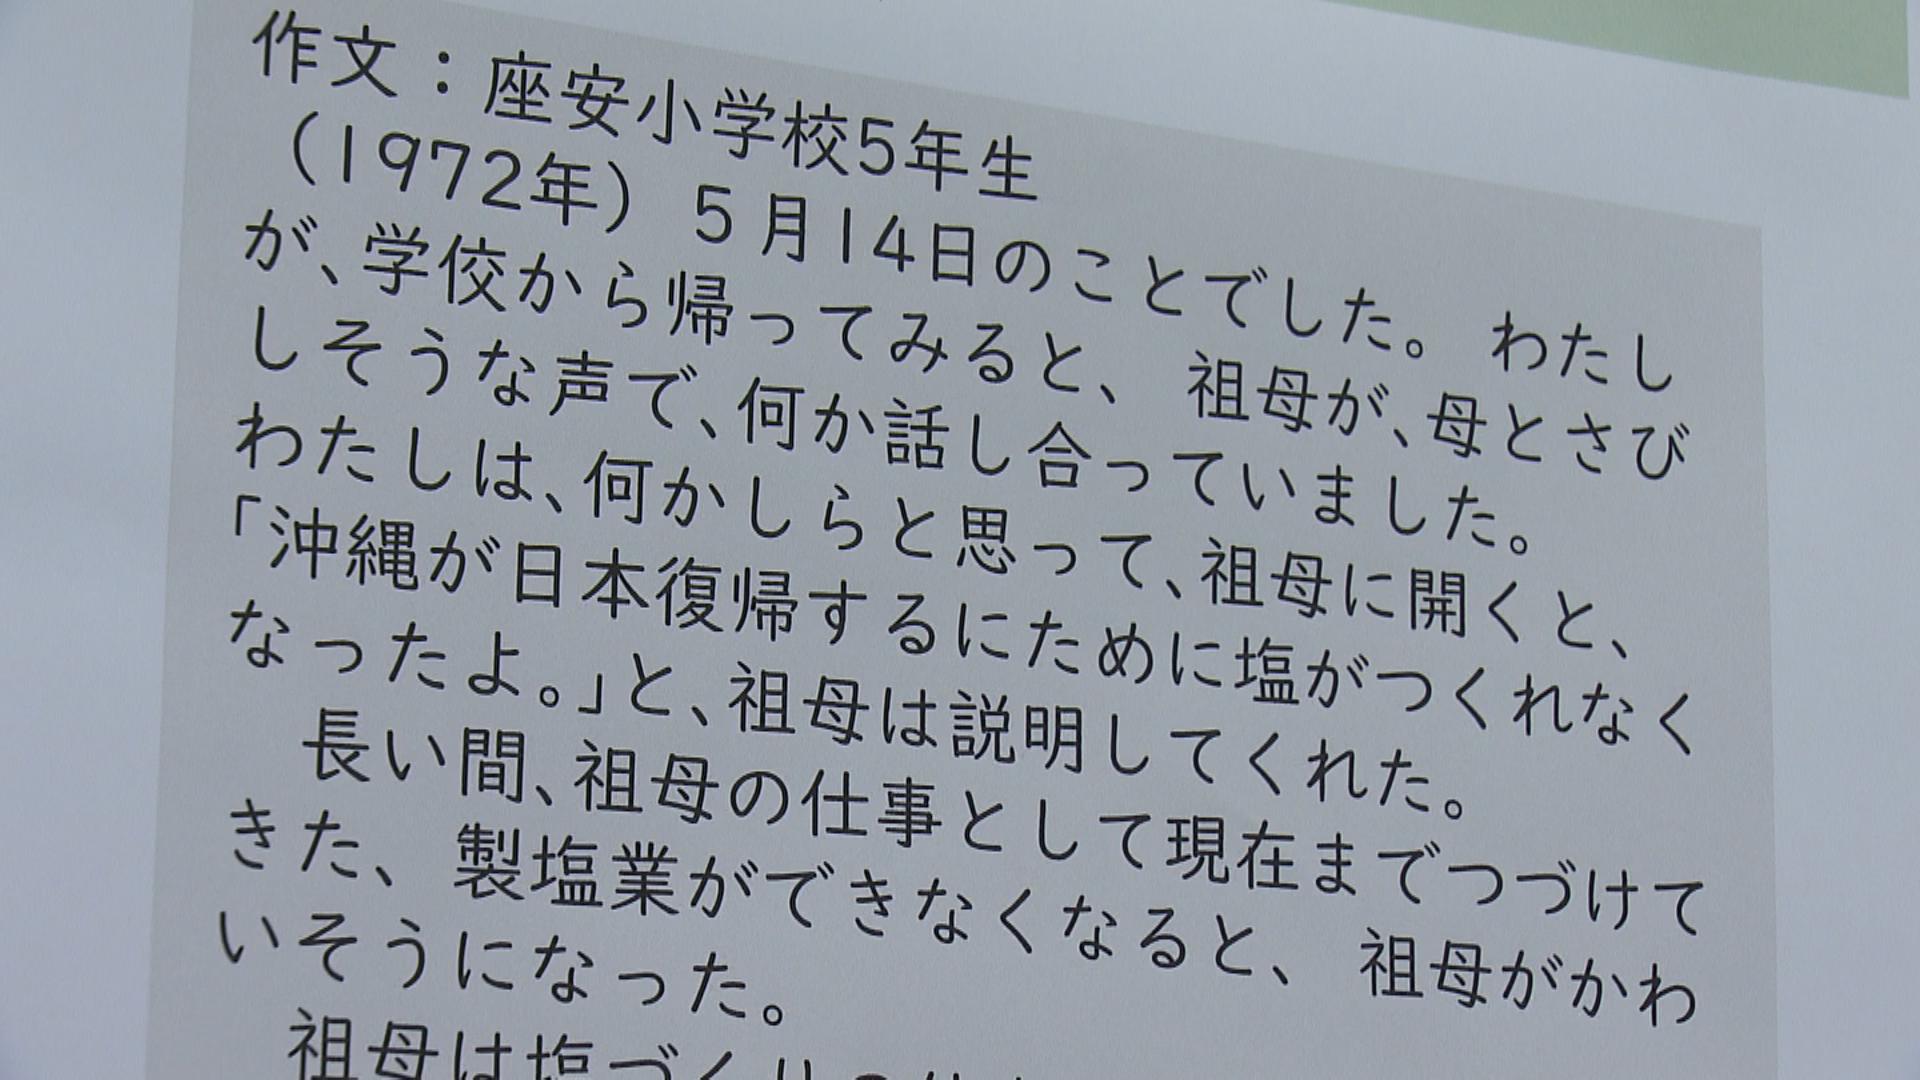 作文：座安小学校5年生
（1972年）５月14日のことでした。わたし
が、学校から帰ってみると、祖母が、母とさび
しそうな声で、何か話し合っていました。
わたしは、何かしらと思って、祖母に開くと、
「沖縄が日本復帰するにために塩がつくれなく
なったよ。」と、祖母は説明してくれた。
長い間、祖母の仕事として現在までつづけて
きた、製塩業ができなくなると、祖母がかわ
いそうになった。
祖母は塩づくりの